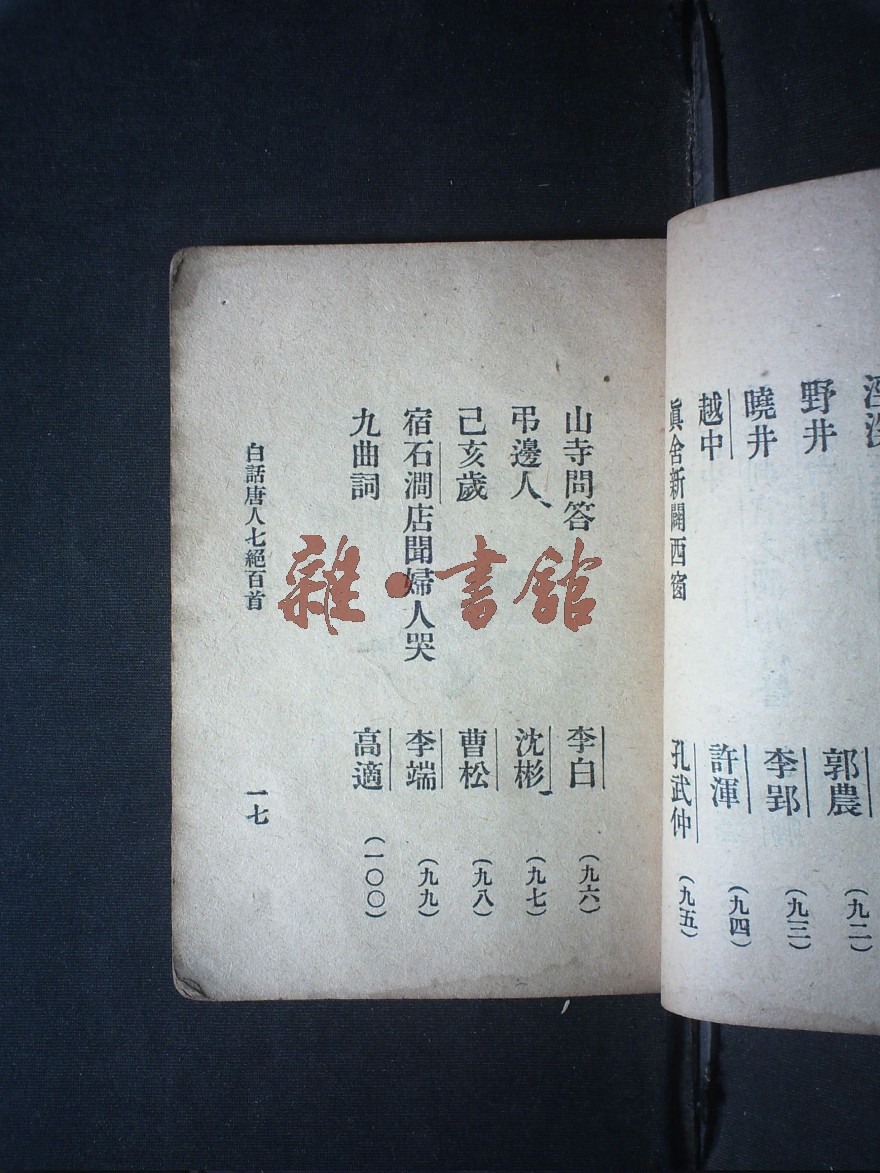 野井 郭農 (九二)
曉井 李郢 (九三)
越中 許渾 (九四)
眞舍新闢西窗 孔武仲 (九五)
山寺問答 李白 (九六)
弔邊人 沈彬 (九七)
己亥歲 曹松 (九八)
宿石澗店聞婦人哭 李端 (九九)
九曲詞 高適 (一〇〇)
白話唐人七絕百首 一七
雜·書館